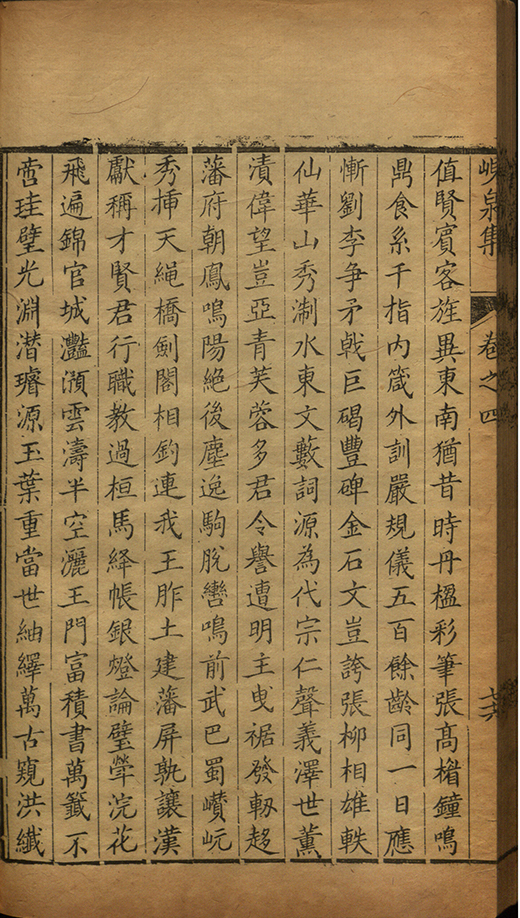 峴泉集 卷之四 十六
值賢賓客旌異東南猶昔時丹楹彩筆張髙楮鐘鳴
鼎食糸千指内箴外訓嚴規儀五百餘齡同一日應
慚劉李争矛戟巨碣豐碑金石文豈誇張柳相雄軼
仙華山秀淛水東文藪詞源為代宗仁聲義澤世薫
漬偉望豈亞青芙蓉多君令譽遭明主曵裾發軔趍
藩府朝鳳鳴陽絶後塵逸駒脫轡鳴前武巴蜀巑岏
秀揷天䋲橋劍閣相鈎連我王胙土建藩屏孰讓漢
獻稱才賢君行職教過桓馬絳帳銀燈論璧犖浣花
飛遍錦官城灩澦雲濤半空灑王門富積書萬籤不
啻珪璧光淵濳璿源玉葉重當世紬繹萬古窺洪纖